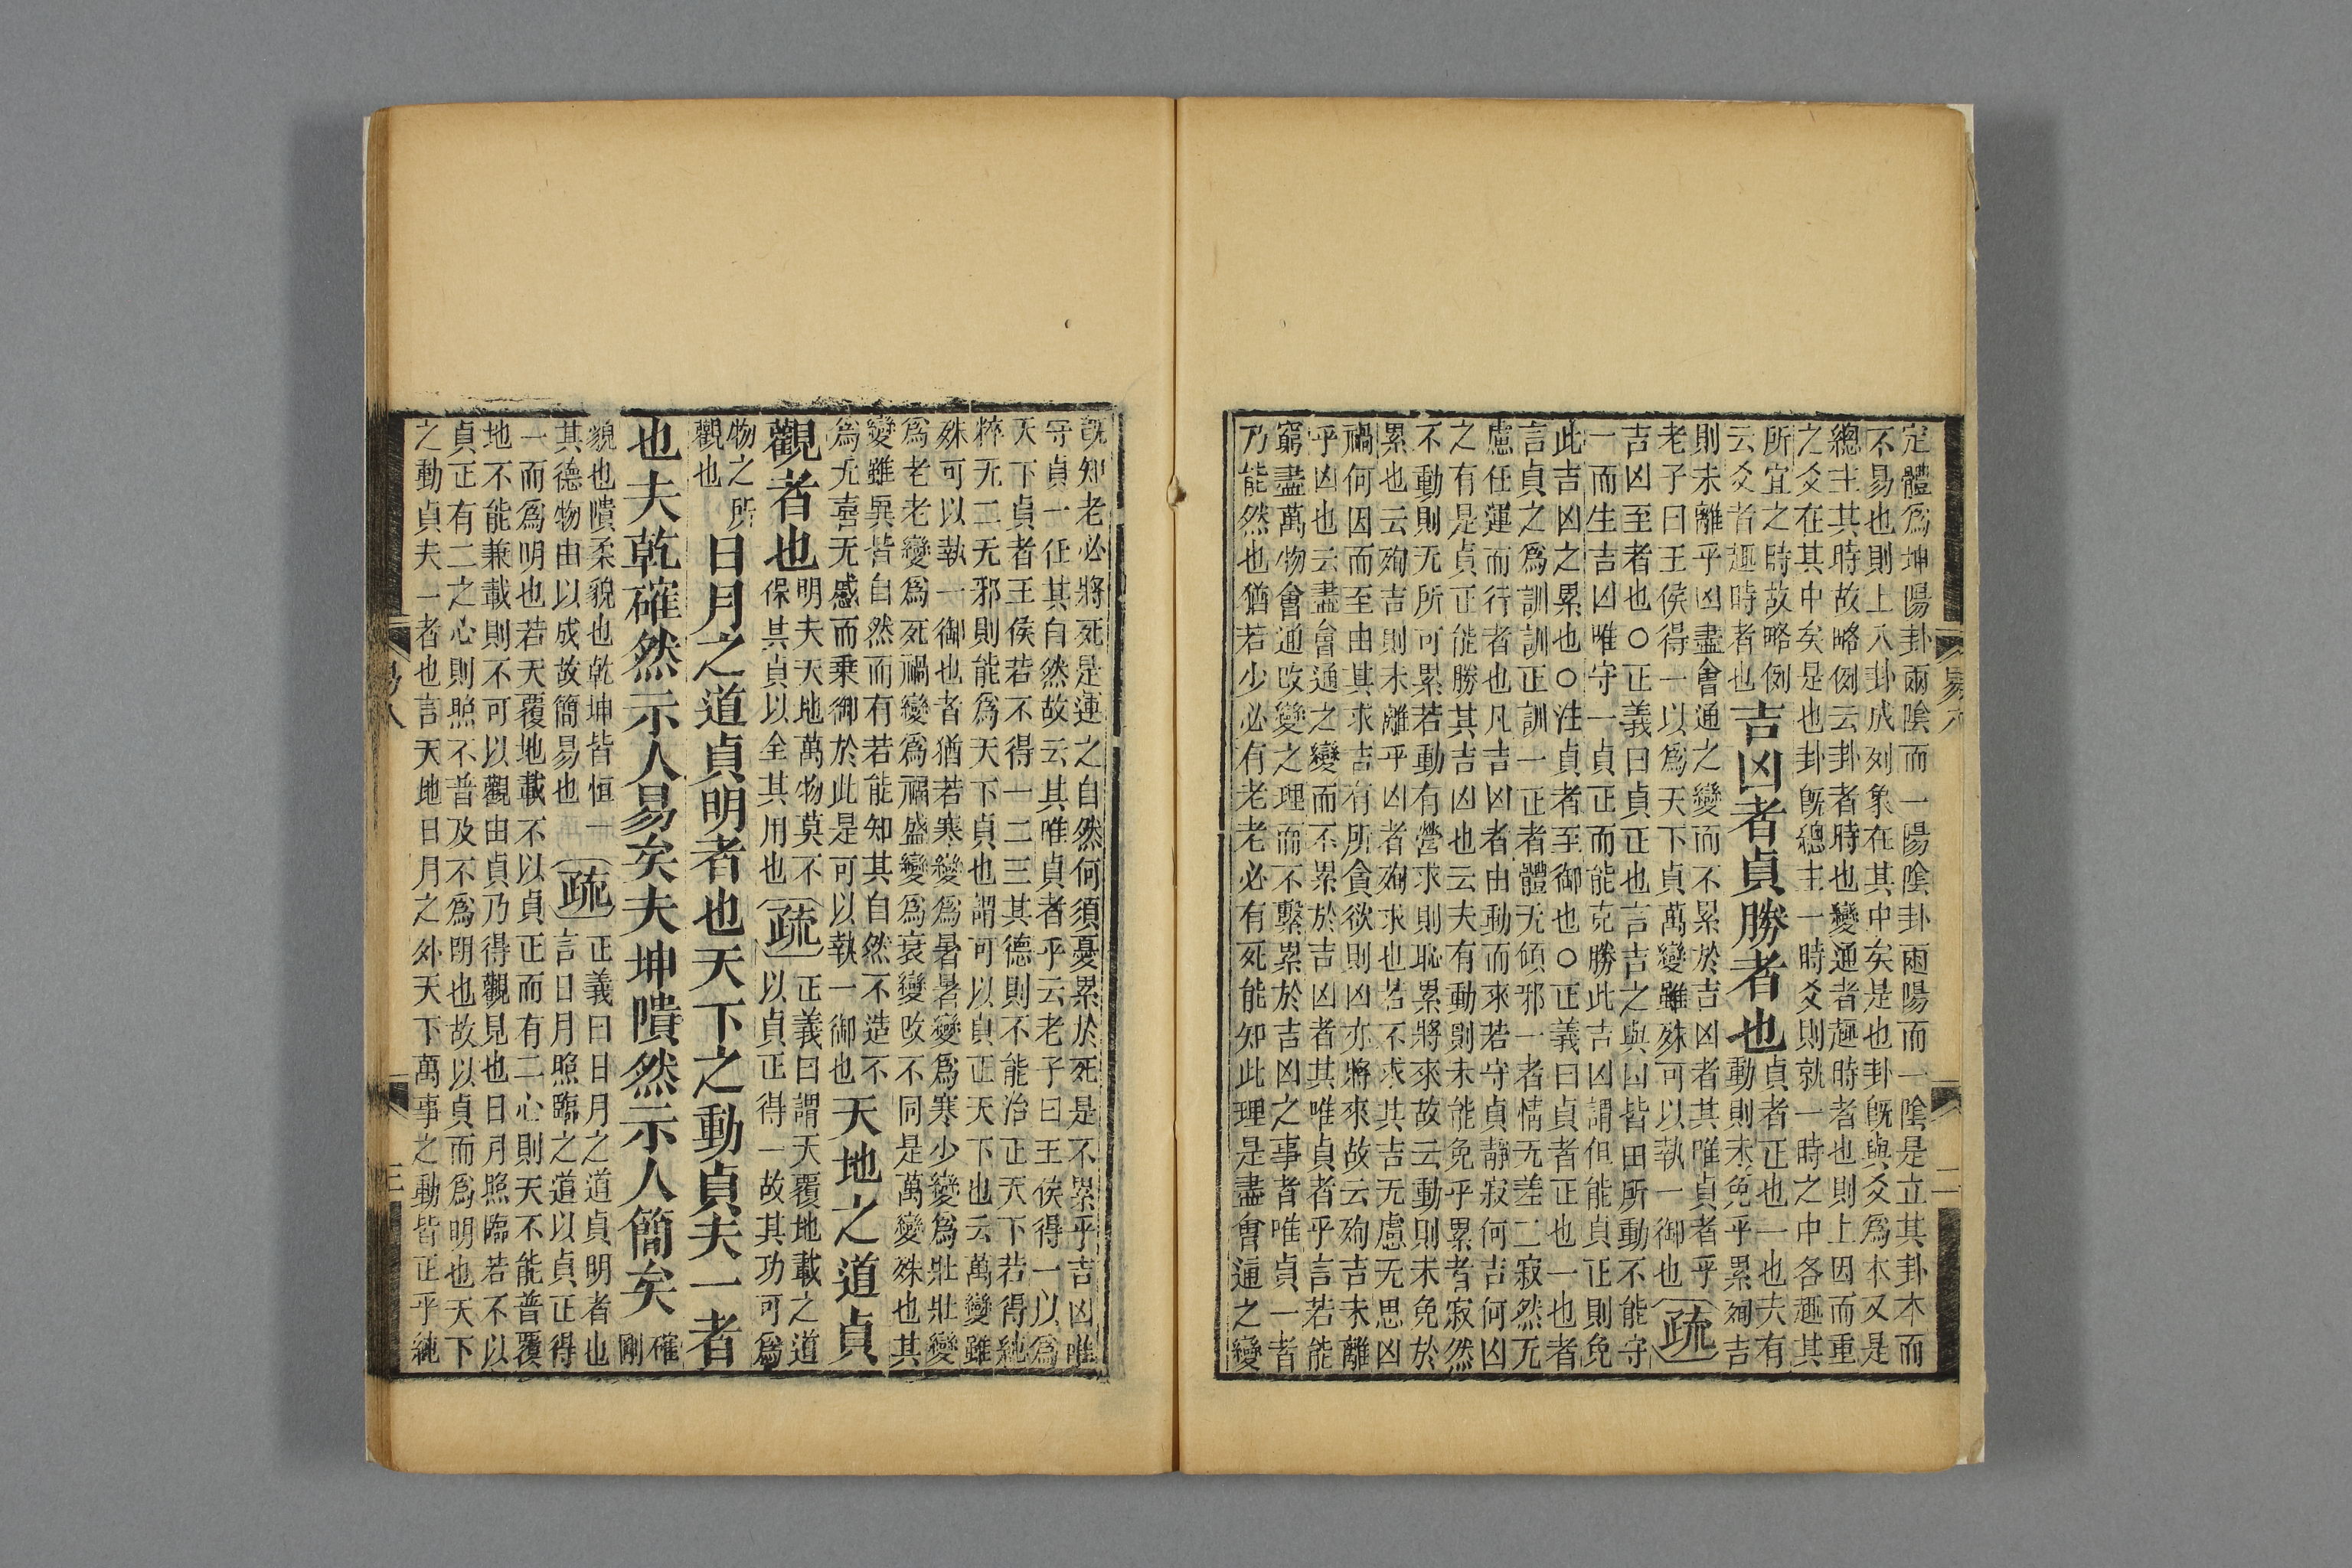 定體爲坤陽卦兩陰而一陽陰卦兩陽而一陰是立其卦本而
不易也則上八卦成列象在其中矣是也卦旣與爻爲本又是
總主其時故略例云卦者時也變通者趣時者也則上因而重
之爻在其中矣是也卦旣總主一時爻則就一時之中各趣其
所宜之時故略例
云爻者趣時者也
吉凶者貞勝者也
貞者正也一也夫有
動則未免乎累殉吉
則未離乎凶盡會通之變而不累於吉凶者其唯貞者乎
老子曰王侯得一以爲天下貞萬變雖殊可以執一御也
疏
吉凶至者也○正義曰貞正也言吉之與凶皆由所動不能守
一而生吉凶唯守一貞正而能克勝此吉凶謂但能貞正則免
此吉凶之累也○注貞者至御也○正義曰貞者正也一也者
言貞之爲訓訓正訓一正者體无傾邪一者情无差二寂然无
慮任運而行者也凡吉凶者由動而來若守貞靜寂何吉何凶
之有是貞正能勝其吉凶也云夫有動則未能免乎累者寂然
不動則无所可累若動有營求則恥累將來故云動則未免於
累也云殉吉則未離乎凶者殉求也若不求其吉无慮无思凶
禍何因而至由其求吉有所貪欲則凶亦將來故云殉吉未離
乎凶也云盡會通之變而不累於吉凶者其唯貞者乎言若能
窮盡萬物會通改變之理而不繫累於吉凶之事者唯貞一者
乃能然也猶若少必有老老必有死能知此理是盡會通之變
易八
二
旣知老必將死是運之自然何須憂累於死是不累乎吉凶唯
守貞一任其自然故云其唯貞者乎云老子曰王侯得一以爲
天下貞者王侯若不得一二三其德則不能治正天下若得純
粹无二无邪則能爲天下貞也謂可以貞正天下也云萬變雖
殊可以執一御也者猶若寒變爲暑暑變爲寒少變爲壯壯變
爲老老變爲死禍變爲福盛變爲衰變改不同是萬變殊也其
變雖異皆自然而有若能知其自然不造不
爲无喜无慼而乗御於此是可以執一御也
天地之道貞
觀者也
明夫天地萬物莫不
保其貞以全其用也
疏
正義曰謂天覆地載之道
以貞正得一故其功可爲
物之所
觀也
日月之道貞明者也天下之動貞夫一者
也夫乾確然示人易矣夫坤隤然示人簡矣
確
剛
貌也隤柔貌也乾坤皆恒一
其德物由以成故簡易也
疏
正義曰日月之道貞明者也
言日月照臨之道以貞正得
一而爲明也若天覆地載不以貞正而有二心則天不能普覆
地不能兼載則不可以觀由貞乃得觀見也日月照臨若不以
貞正有二之心則照不普及不爲明也故以貞而爲明也天下
之動貞夫一者也言天地日月之外天下萬事之動皆正乎純
易八
三